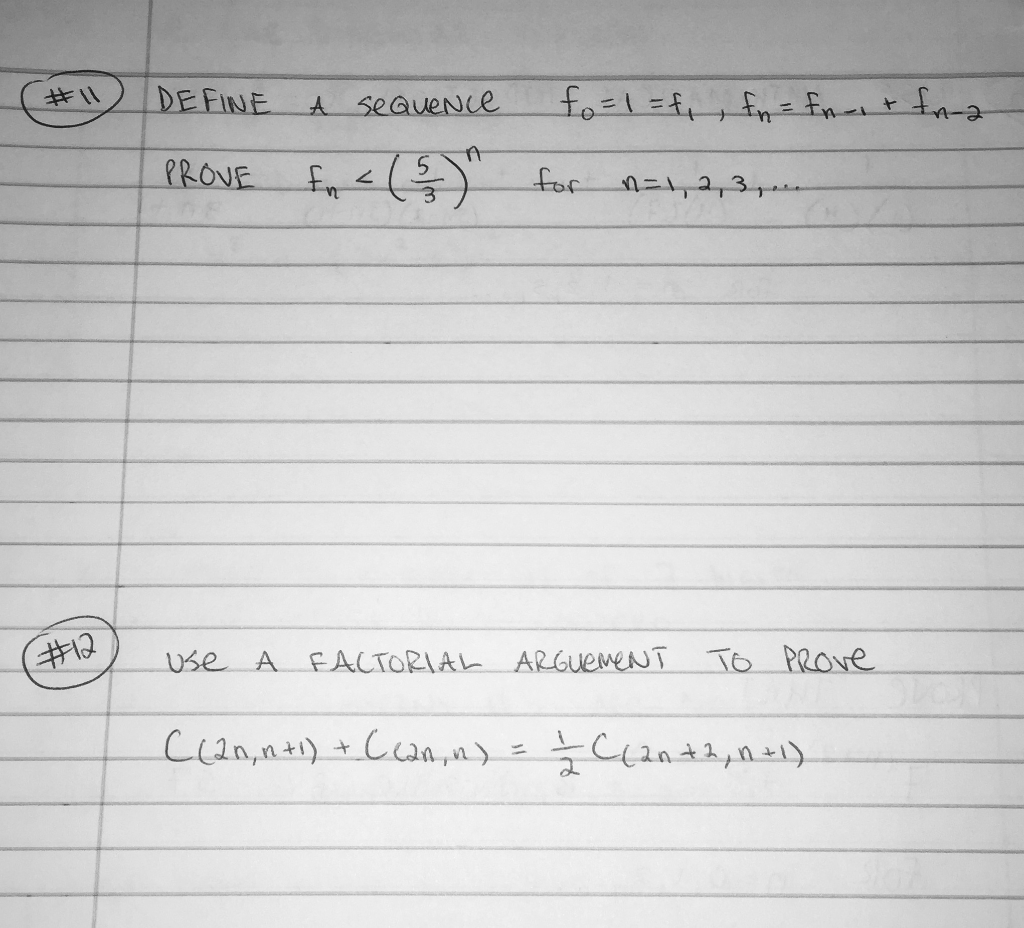 #11 DEFINE A SEQUENCE f₀=1=f₁, fₙ=fₙ₋₁+fₙ₋₂
PROVE fₙ < (5/3)ⁿ for n=1,2,3,...
#12 USE A FACTORIAL ARGUEMENT TO PROVE
C(2n,n+1) + C(2n,n) = 1/2 C(2n+2,n+1)